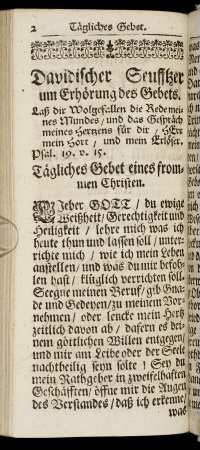 2 Tägliches Gebet.
Davidischer Seufftzer
um Erhörung des Gebets.
Laß dir Wolgefallen die Rede mei-
nes Mundes / und das Gespräch
meines Hertzens für dir / HErr
mein Hort / und mein Erlöser.
Psal. 19. v. 15.
Tägliches Gebet eines from-
men Christen.
LIeber GOTT / du ewige
Weißheit / Gerechtigkeit und
Heiligkeit / lehre mich was ich
heute thun und lassen soll / unter-
richte mich / wie ich mein Leben
anstellen / und was du mir befoh-
len hast / klüglich verrichten soll.
Seegne meinen Beruf / gib Gna-
de und Gedeyen / in meinem Vor-
nehmen / oder lencke mein Hertz
zeitlich davon ab / dafern es dei-
nem göttlichen Willen entgegen /
und mir am Leibe oder der Seele
nachtheilig seyn solte! Sey du
mein Rathgeber in zweifelhafften
Geschäfften / öffne mir die Augen
des Verstandes / daß ich erkenne /
was